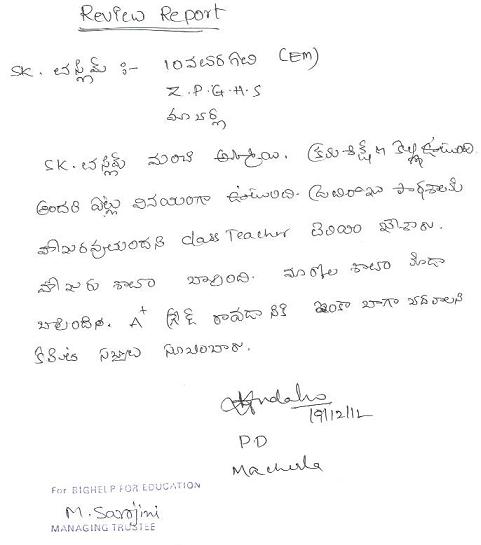 Review Report
SK. తస్లిమ్ :- 10వ తరగతి (EM)
Z.P.G.H.S
మాచర్ల
SK. తస్లిమ్ మంచి అమ్మాయి. క్రమశిక్షణ కల్గి ఉంటుంది.
అందరి పట్ల వినయంగా ఉంటుంది. ప్రతిరోజు పాఠశాలకు
హాజరవుతుందని class Teacher తెలియ జేసారు.
హాజరు శాతం బాగుంది. మార్కుల శాతం కూడా
బాగుంది. A+ గ్రేడ్ రావడానికి ఇంకా బాగా చదవాలని
సూచించారు.
19/12/12
P.D
Macherla
For BIGHELP FOR EDUCATION
M. Sarojini
MANAGING TRUSTEE